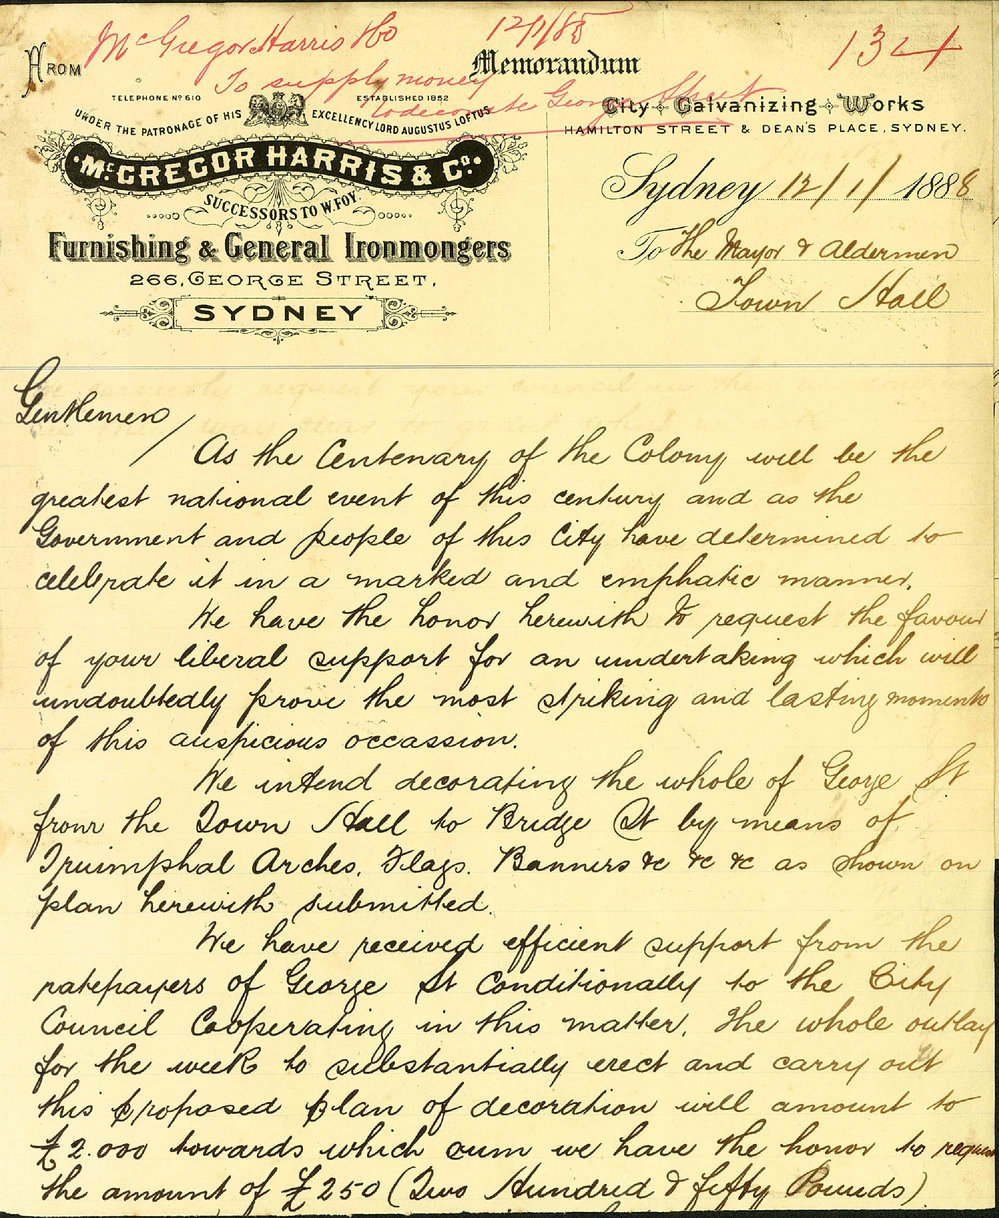 McGregor Harris & Co
12/1/88
134
To supply money
to decorate George Street
FROM
Memorandum
TELEPHONE No 610
ESTABLISHED 1852
UNDER THE PATRONAGE OF HIS EXCELLENCY LORD AUGUSTUS LOFTUS.
City Galvanizing Works
HAMILTON STREET & DEAN'S PLACE, SYDNEY.
McGREGOR HARRIS & Co.
SUCCESSORS TO W. FOY.
Furnishing & General Ironmongers
266, GEORGE STREET,
SYDNEY
Sydney 12/1/1888
To The Mayor & Aldermen
Town Hall
Gentlemen
As the Centenary of the Colony will be the
greatest national event of this century and as the
Government and people of this City have determined to
celebrate it in a marked and emphatic manner.
We have the honor herewith to request the favour
of your liberal support for an undertaking which will
undoubtedly prove the most striking and lasting momento
of this auspicious occassion.
We intend decorating the whole of George St
from the Town Hall to Bridge St by means of
Triumphal Arches. Flags. Banners &c &c &c as shown on
plan herewith submitted.
We have received efficient support from the
ratepayers of George St conditionally to the City
Council Cooperating in this matter. The whole outlay
for the week to substantially erect and carry out
this proposed plan of decoration will amount to
£2.000 towards which sum we have the honor to request
the amount of £250 (Two Hundred & fifty Pounds)